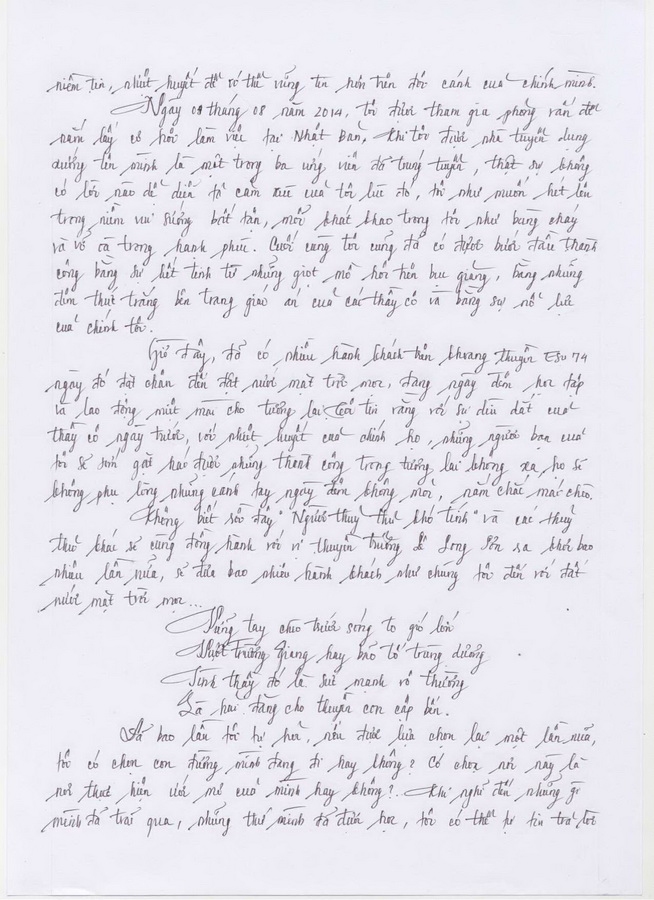 niềm tin, nhiệt huyết để có thể vững tin hơn trên đôi cánh của chính mình.
Ngày 08 tháng 08 năm 2014, tôi được tham gia phỏng vấn để
nắm lấy cơ hội làm việc tại Nhật Bản. Khi tôi được nhà tuyển dụng
xướng tên mình là một trong ba ứng viên đã trúng tuyển, thật sự không
có lời nào để diễn tả cảm xúc của tôi lúc đó, tôi như muốn hét lên
trong niềm vui sướng bất tận, mỗi khát khao trong tôi như bùng cháy
và vỡ oà trong hạnh phúc. Cuối cùng tôi cũng đã có được bước đầu thành
công bằng sự kết tinh từ những giọt mồ hôi trên bục giảng, bằng những
đêm thức trắng bên trang giáo án của các thầy cô và bằng sự nỗ lực
của chính tôi.
Giờ đây, đã có nhiều hành khách trên khoang thuyền Esu 74
ngày đó đặt chân đến đất nước mặt trời mọc, đang ngày đêm học tập
và lao động miệt mài cho tương lai. Tôi tin rằng với sự dìu dắt của
thầy cô ngày trước, với nhiệt huyết của chính họ, những người bạn của
tôi sẽ sớm gặt hái được những thành công trong tương lai không xa, họ sẽ
không phụ lòng những cánh tay ngày đêm không mỏi, nắm chắc mái chèo.
Không biết rồi đây "Người thuỷ thủ khó tính" và các thuỷ
thủ khác sẽ cùng đồng hành với vị thuyền trưởng Lê Long Sơn ra khơi bao
nhiêu lần nữa, sẽ đưa bao nhiêu hành khách như chúng tôi đến với đất
nước mặt trời mọc...
Vững tay chèo trước sóng to gió lớn
Vượt trường giang hay bão tố trùng dương
Tình thầy đó là sức mạnh vô thường
Là hải đăng cho thuyền con cập bến.
Đã bao lần tôi tự hỏi, nếu được lựa chọn lại một lần nữa,
tôi có chọn con đường mình đang đi hay không? Có chọn nơi này là
nơi thực hiện ước mơ của mình hay không? Khi nghĩ đến những gì
mình đã trải qua, những thứ mình đã được học, tôi có thể tự tin trả lời